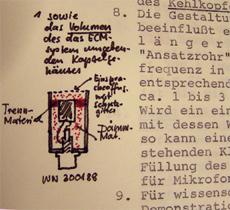 1 sowie
das Volumen
des das ECM-
system umgeben
den Kapselge-
häuses
Einspra-
cheöffng.
mit
Schutz-
gitter
Trenn-
Material
Dämm-
Mat.
WN 300188
des Kehlkopf
8. Die Gestaltu
beeinflußt e
länger
"Ansatzrohr"
frequenz in
entsprechende
ca. 1 bis 3
Wird ein ein
mit dessen W
so kann eine
stehenden Kl
Füllung des
für Mikrofon
9. Für wissens
Demonstration